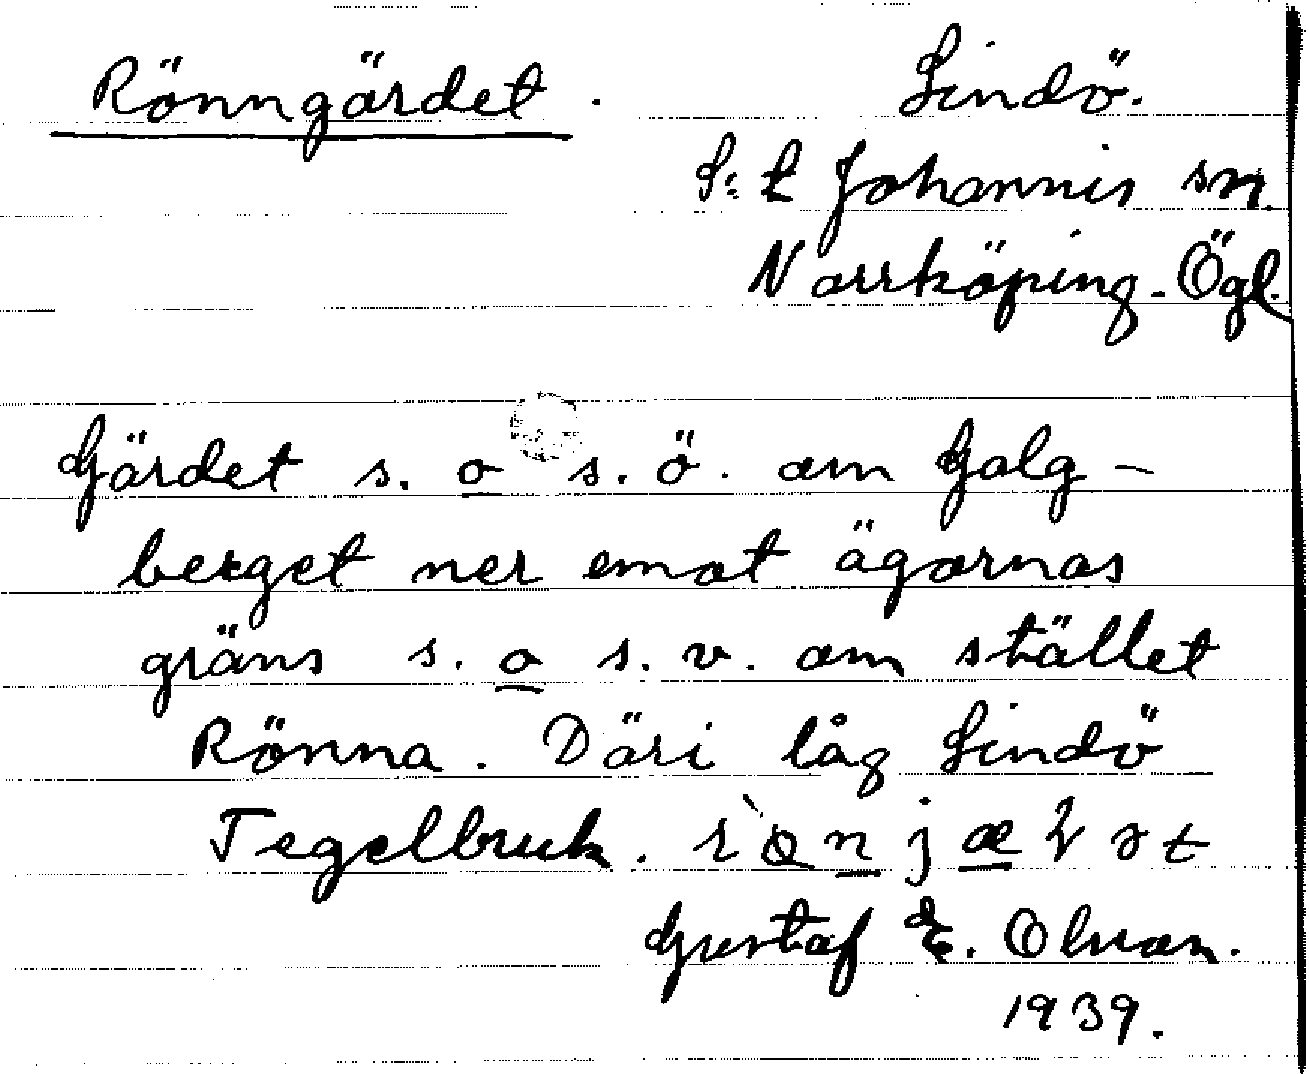 Rönngärdet. Lindö.
S:t Johannis sn.
Norrköping. Ögl.
Gärdet s. o s. ö. om Galg-
berget ner emot ägornas
gräns s. o s. v. om stället
Rönna. Däri låg Lindö
Tegelbruk.
Gustaf E. Olsson.
1939.